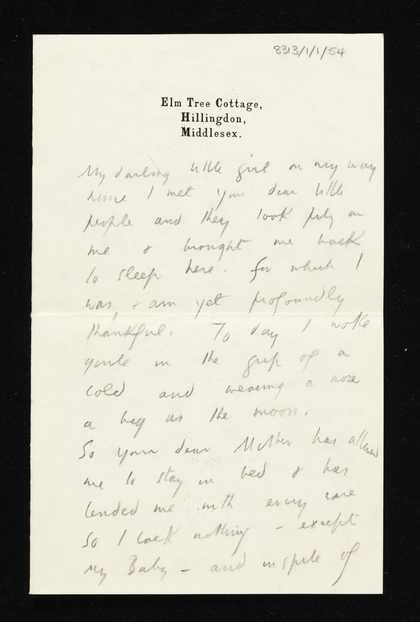 8313/1/1/54
Elm Tree Cottage,
Hillingdon,
Middlesex.
My darling little girl on my way
home I met your dear little
people and they took pity on
me & brought me back
to sleep here. for which I
was, & am yet profoundly
thankful. To day I woke
in the grip of a
cold and wearing a nose
a big as the moon.
So your dear Mother has allowed
me to stay in bed & has
tended me with every care
So I lack nothing – except
My Baby – and inspite of